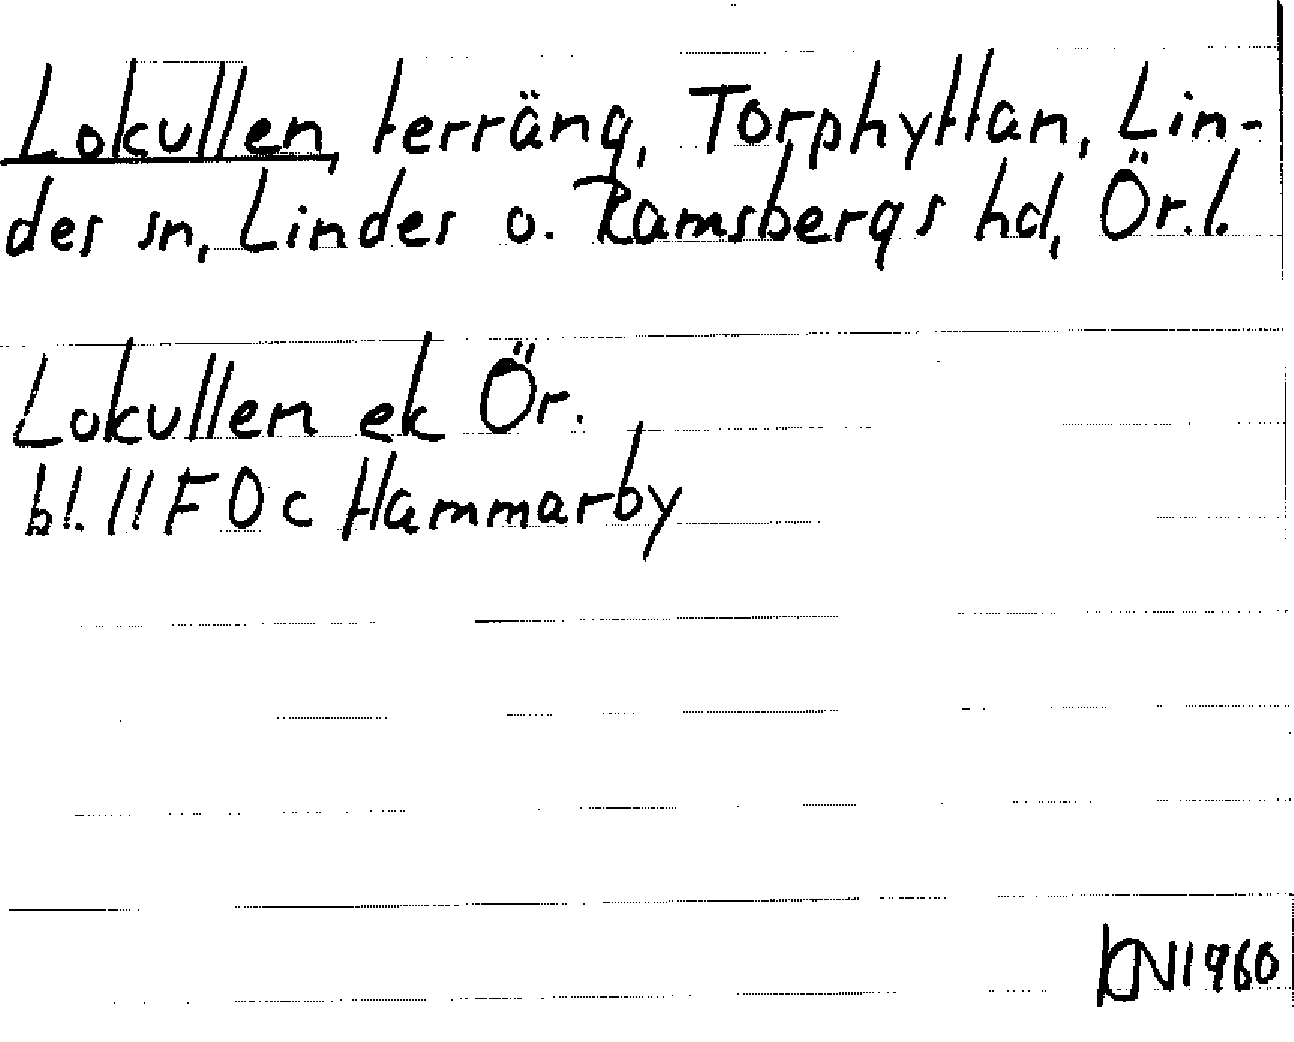 Lokullen, terräng, Torphyttan, Lin-
des sn, Lindes o. Ramsbergs hd, Ör.l.
Lokullen ek Ör.
bl. 11F 0c Hammarby
1960